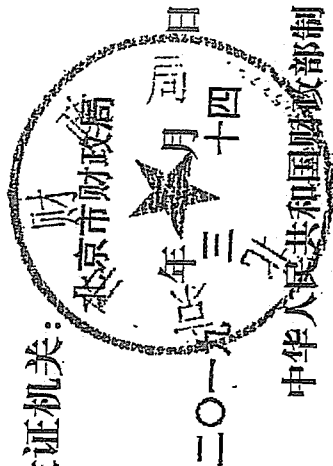 证机关:
北京市财政局
二〇一九年三月十四日
中华人民共和国财政部制